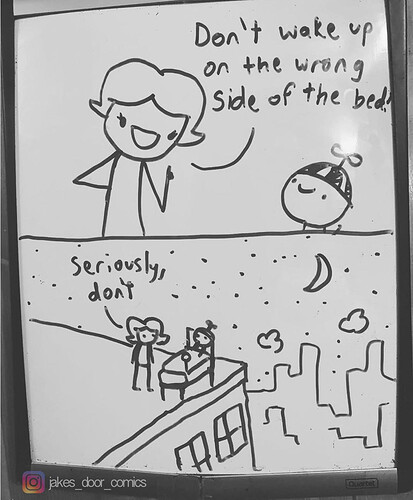 Don't wake up
on the wrong
side of the bed!
Seriously,
don't
jakes_door_comics
Quartet